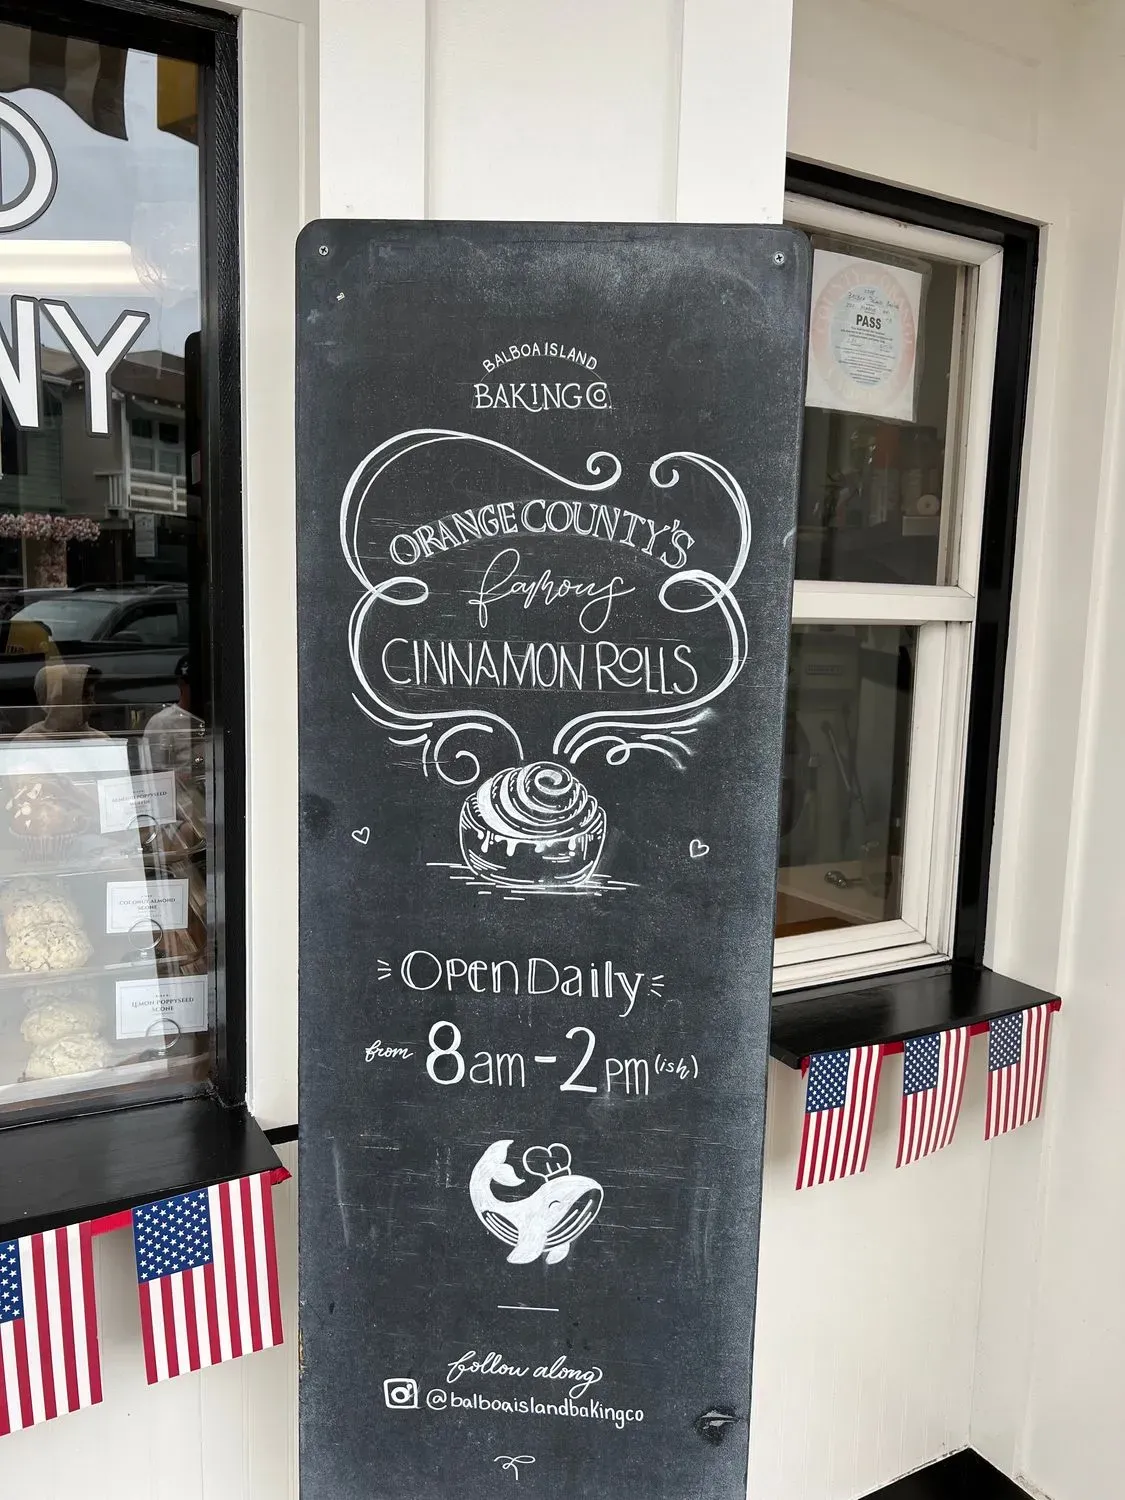 D
NY
BALBOA ISLAND
BAKING CO.
ORANGE COUNTY'S
famous
CINNAMON ROLLS
Open Daily
from 8am - 2pm (ish)
follow along
@balboaislandbakingco
PASS
POPPYSEED
COCONUT ALMOND
SCONE
LEMON POPPYSEED
SCONE